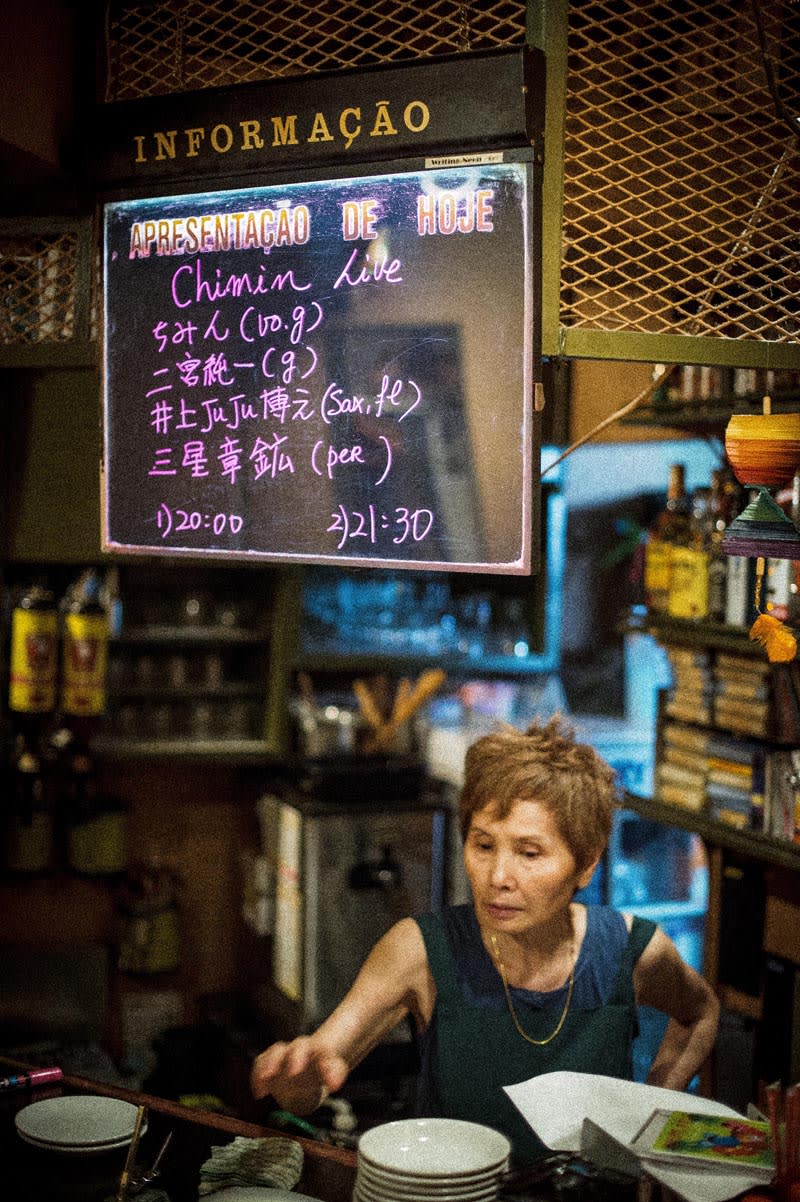 INFORMAÇÃO
APRESENTAÇÃO DE HOJE
Chimin Live
ちみん (vo.g)
二宮純一 (g)
井上JuJu博之 (Sax, fl)
三星章鉱 (per)
1) 20:00 2) 21:30